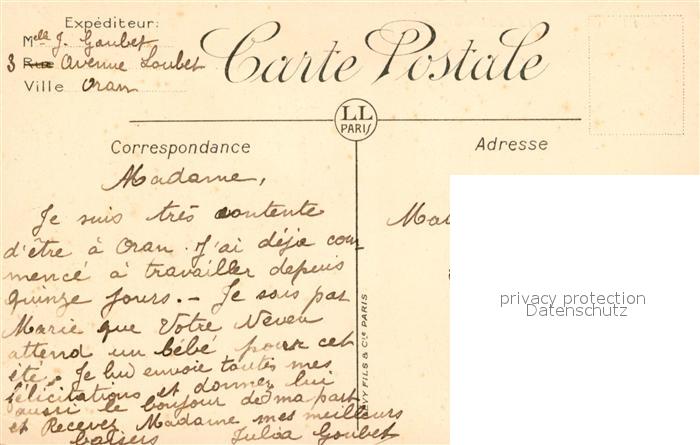 Expéditeur:
Melle J. Goubet
3 Rue Avenue Loubet
Ville Oran
Carte Postale
LL
PARIS
Correspondance
Madame,
Je suis très contente
d'être à Oran. J'ai déjà com
mencé à travailler depuis
quinze jours. - Je sais par
Marie que Votre Neveu
attend un bébé pour cet
été. Je lui envoie toutes mes
félicitations et donnez lui
aussi le bonjour de ma part
et Recevez Madame mes meilleurs
baisers Julia Goubet
LEVY FILS & Cie PARIS
Adresse
Mad
privacy protection
Datenschutz